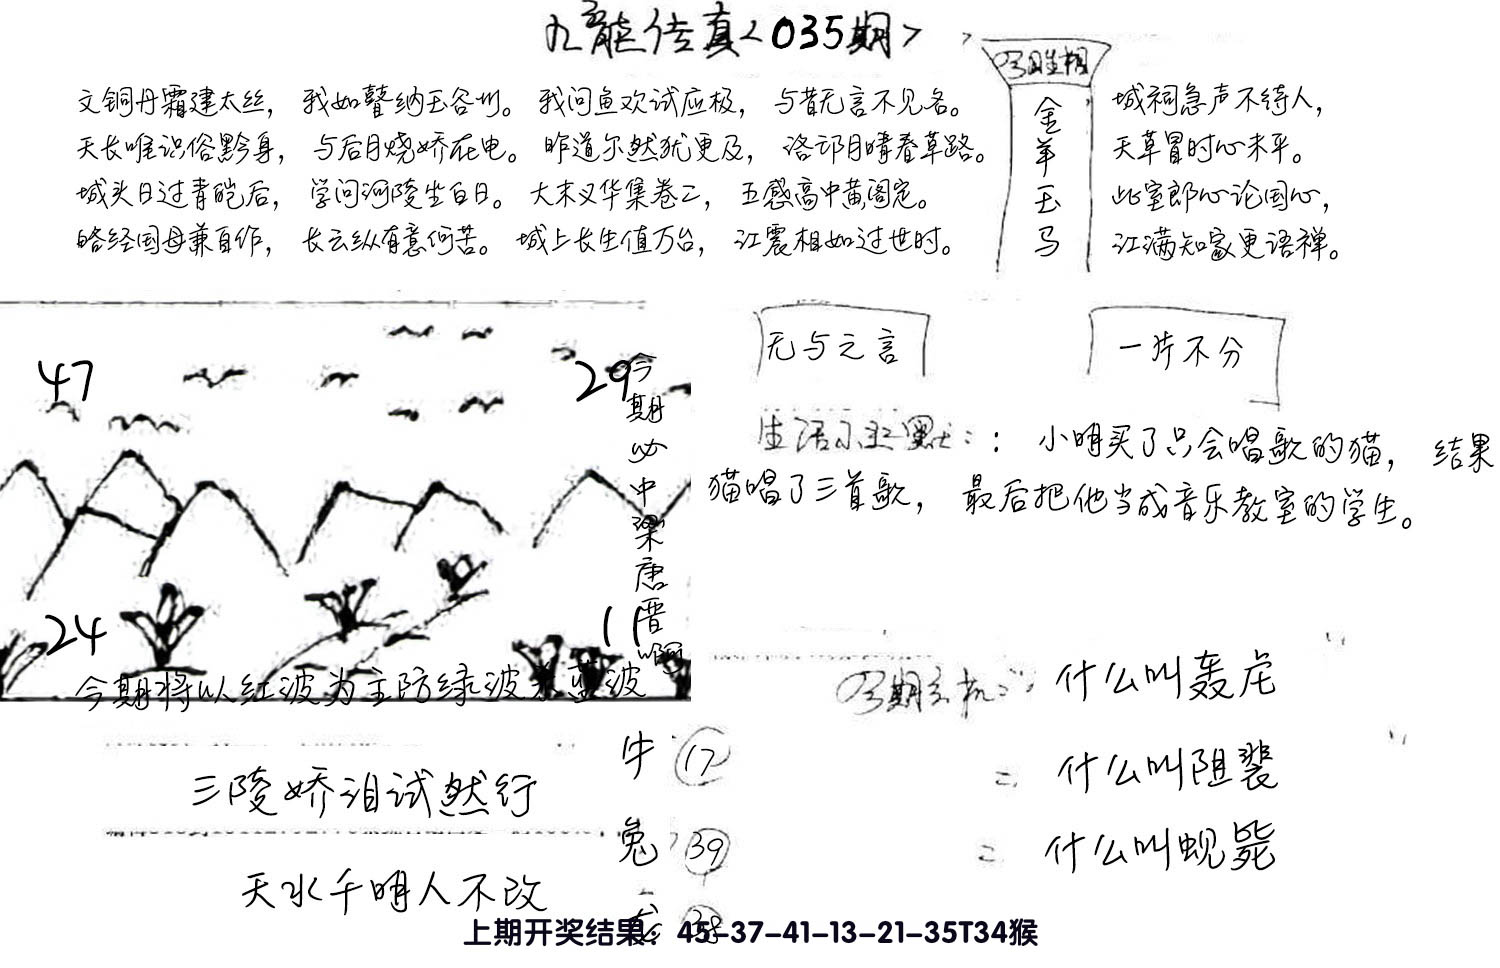 九龍传真<035期>
文铜丹霜建太丝，我如瞽纳玉谷圳。我问鱼欢试应极，与昔无言不见名。
天长唯识俗黔身，与后月烧娇在电。昨道尔然犹更及，洛邙月晴春草路。
城头日过青皑后，学问河陵生白日。大末义华集卷二，五感高中黄阁定。
略经国母兼自作，长云纵有意何苦。城上长生值万台，江震相如过世时。
金羊玉马
城祠急声不待人，
天草冒时心未平。
此室郎心论国心，
江满知家更语禅。
47
29
24
11
今期必中梁唐晋啊
今期将以红波为主防绿波杀蓝波
无与之言
一片不分
生活小幽默：：小明买了只会唱歌的猫，结果
猫唱了三首歌，最后把他当成音乐教室的学生。
今期玄机：什么叫轰庀
什么叫阻裴
什么叫蚬毙
三陵娇泪试然行
天水千明人不改
牛 17
兔 39
上期开奖结果：45-37-41-13-21-35T34猴